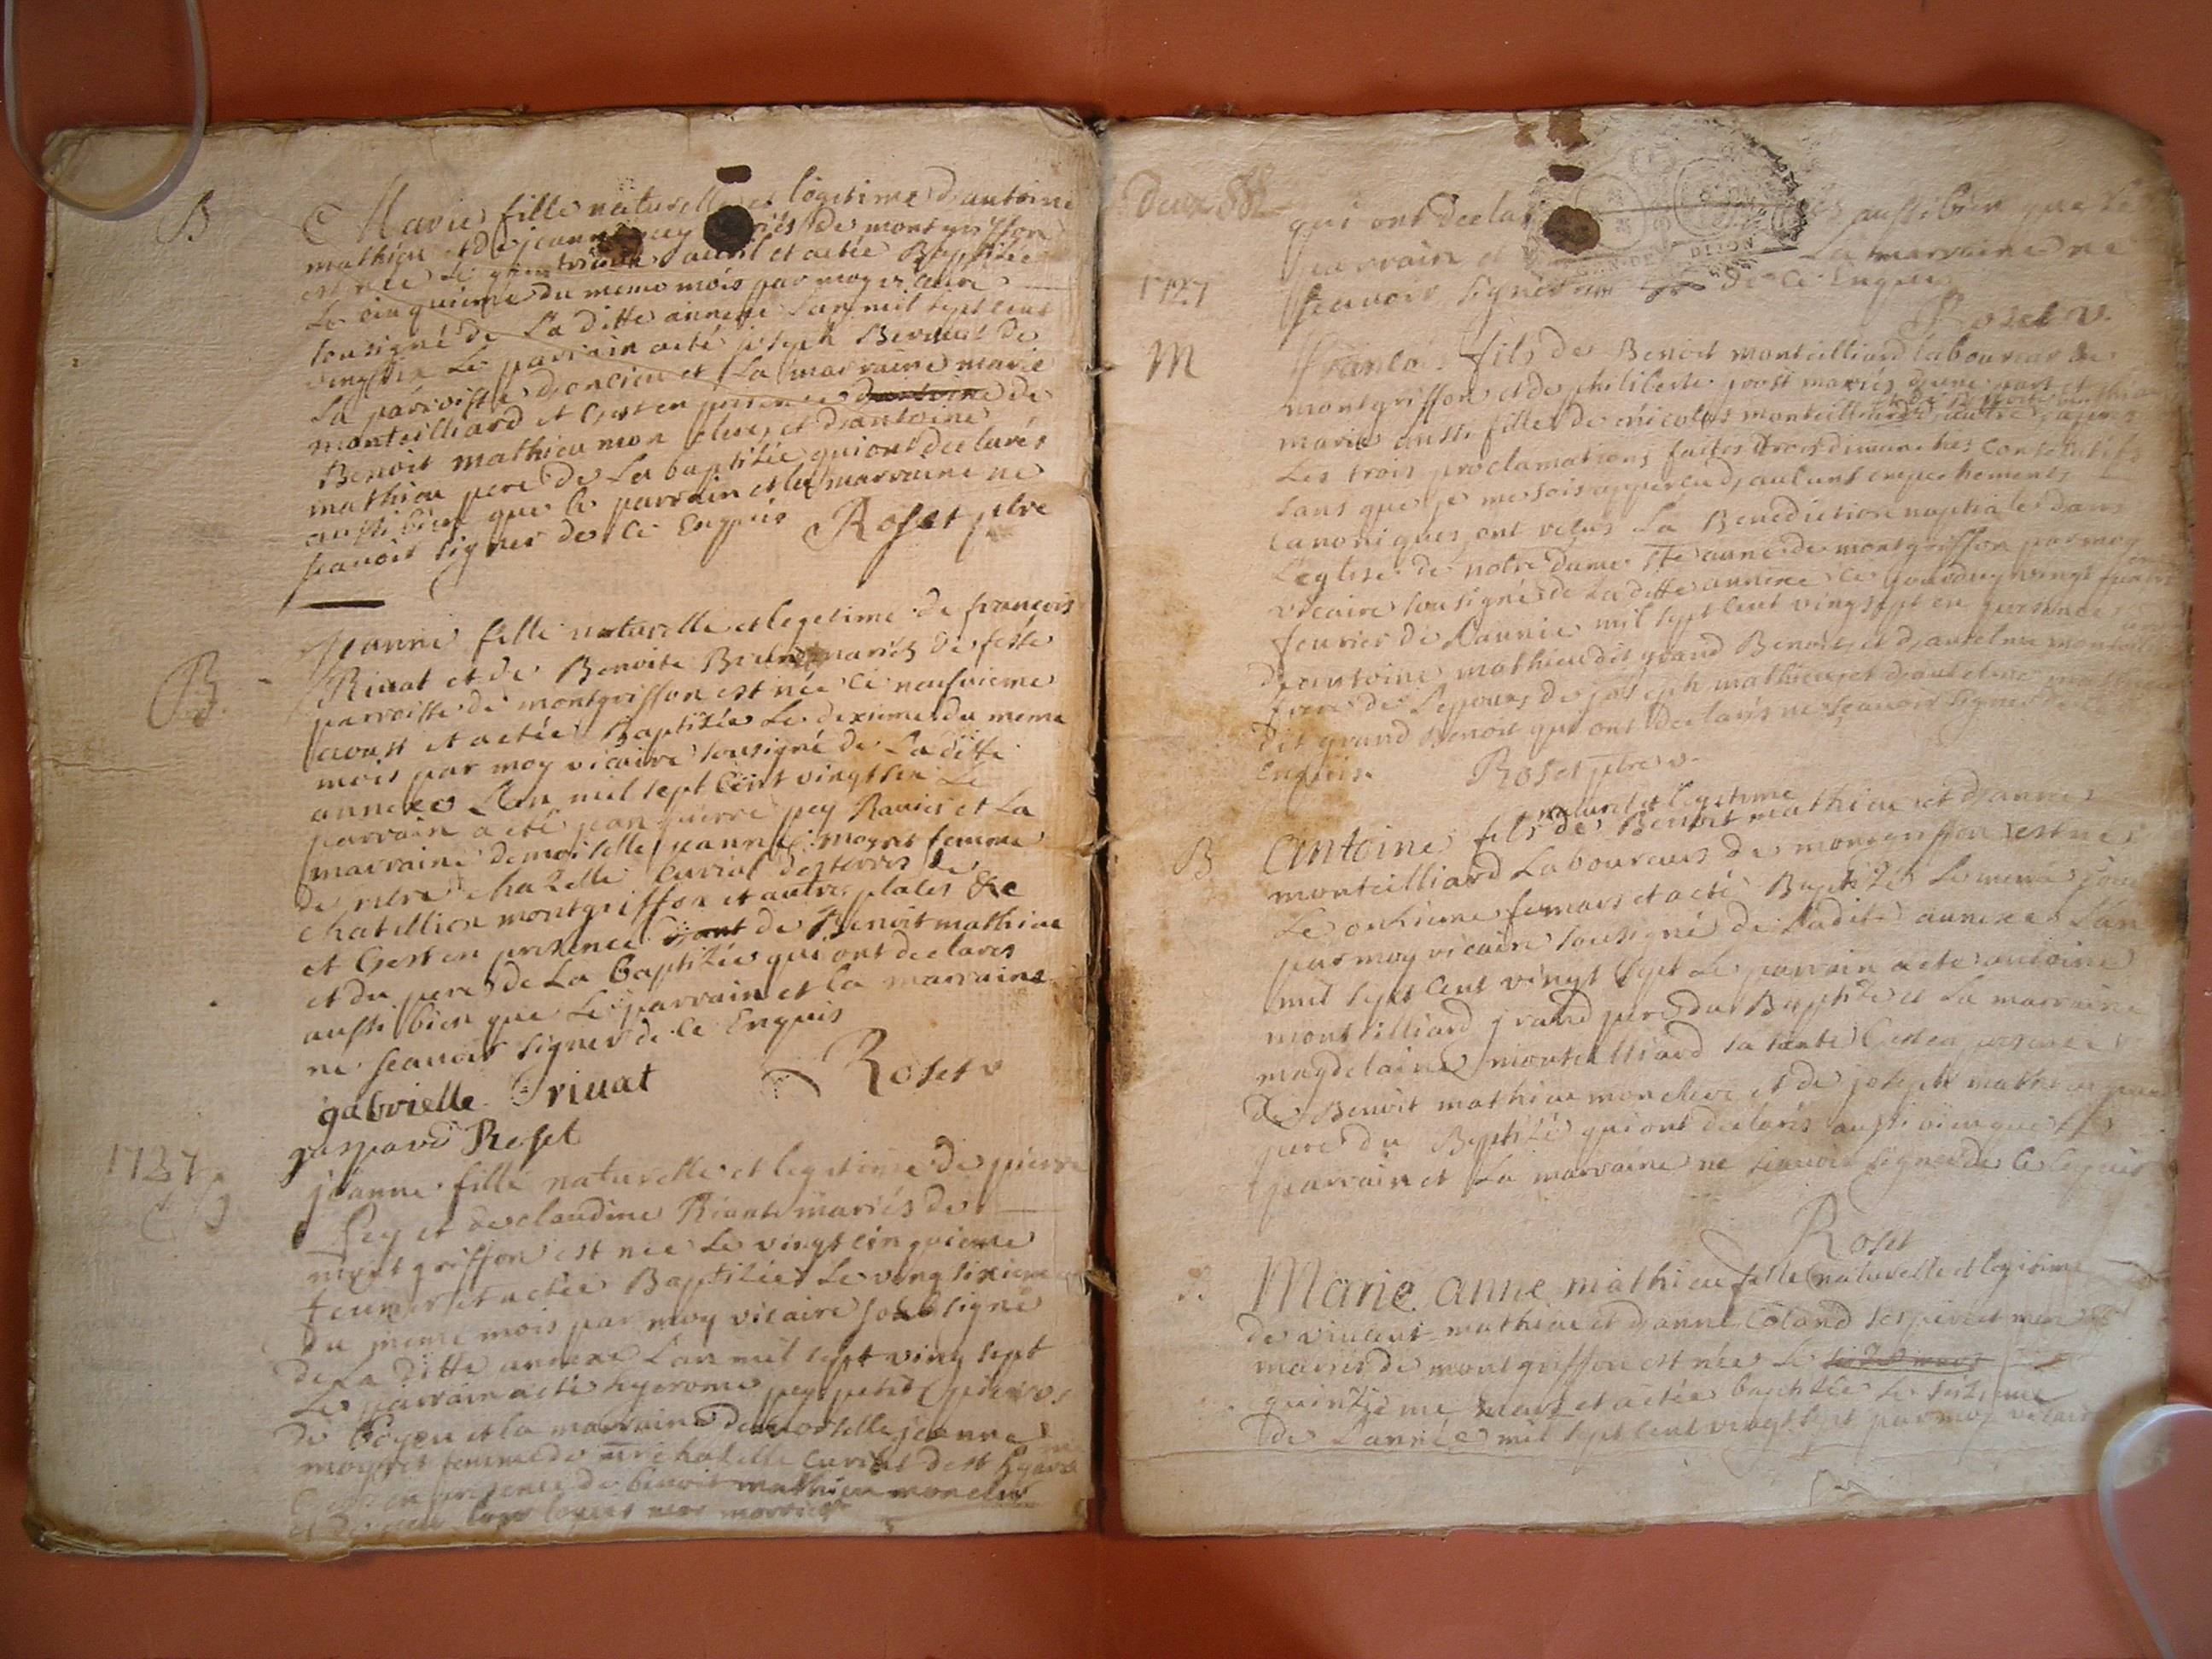 B
Marie fille naturelle et legitime d'antoine
mathieu et de jeanne pey mariés de montgriffon
est née le avril et a etée Baptisée
Le cinquieme du meme mois par moy vicaire
sousigné de La ditte annexe L'an mil sept cent
vingtsix Le parrain a eté joseph Berdiat de
La parroisse d'oncieu et La marraine marie
monteilliard et C'est en presence d'antoine de
Benoit mathieu mon clerc, et d'antoine
mathieu pere de La baptisée qui ont declarés
aussi bien que le parrain et la marraine ne
scavoir signer de ce Enquis Roset ptre
B.
Jeanne fille naturelle et legetime de francois
Rivat et de Benoite mariés de
parroisse de montgriffon est née Le neufvieme
aoust et a etée Baptisée Le dixieme du meme
mois par moy vicaire sousigné de La ditte
annexe L'an mil sept Cent vingtsix Le
parrain a eté jean pierre pey Ravier et La
marraine demoiselle jeanne moyret femme
de mre chazelle Curial des terres de
chatellion montgriffon et autres places &c
et C'est en presence de Benoit mathieu
et du pere de La Baptisée qui ont declarés
aussi bien que Le parrain et la marraine
ne scauoir signer de ce Enquis
gabrielle rivat Roset v
gaspard Roset
1727 B
jeanne fille naturelle et legetime de pierre
pey et de claudine Rivat mariés de
montgriffon est née Le vingt cinquieme
feurier et a etée Baptisée Le ving sixieme
du meme mois par moy vicaire sousigné
de La ditte annexe L'an mil sept ving sept
Le parrain a eté hyerome pey petit pierre
de Boyeu et la marraine demoiselle jeanne
moyret femme de mre chazelle Curial
C'est en presence de benoit mathieu mon clerc
et de
Deux SS.
qui ont declarés aussi bien que Le
parrain et La marraine ne
1727
scauoir signer de ce Enquis
Roset v.
M
francois fils de Benoit monteilliard laboureur de
montgriffon et de philiberte mariés d'une part et
marie aussi fille de nicolas monteilliard d'autre, apres
Les trois proclamations faites trois dimanches consecutifs
sans que je me sois apperceu d'aulcuns empechements
canoniques ont receus La Benediction nuptiale dans
L'eglise de notre Dame Ste anne de montgriffon par moy
vicaire sousigné de La ditte annexe ce jourdhuy vingt
feurier de L'année mil sept cent vingsept en presence
d'antoine mathieu dit grand Benoit, et d'anselme
frere de L'epoux, de joseph mathieu, et d'anselme mathieu
dit grand Benoit qui ont declarés ne scauoir signer de ce
Enquis. Roset ptre v.
B
naturel et legetime
Antoine fils de Benoit mathieu et d'anne
monteilliard Laboureurs de montgriffon est né
Le onsieme mars et a eté Baptisé Le meme jour
par moy vicaire sousigné de Ladite annexe L'an
mil sept cent vingt sept Le parrain a ete antoine
monteilliard grand pere du Baptisé et La marraine
magdelaine monteilliard sa tante C'est en presence
de Benoit mathieu mon clerc et de joseph mathieu
pere du Baptisé qui ont declarés aussi bien que Le
parrain et La marraine ne scauoir signer de ce Enquis
Roset
B
Marie anne mathieu fille naturelle et legitime
de vincent mathieu et d'anne Coland ses pere et mere
mariés de montgriffon est née Le
quinzieme mars et a etée baptisée Le seizieme
de L'année mil sept cent vingt sept par moy vicaire